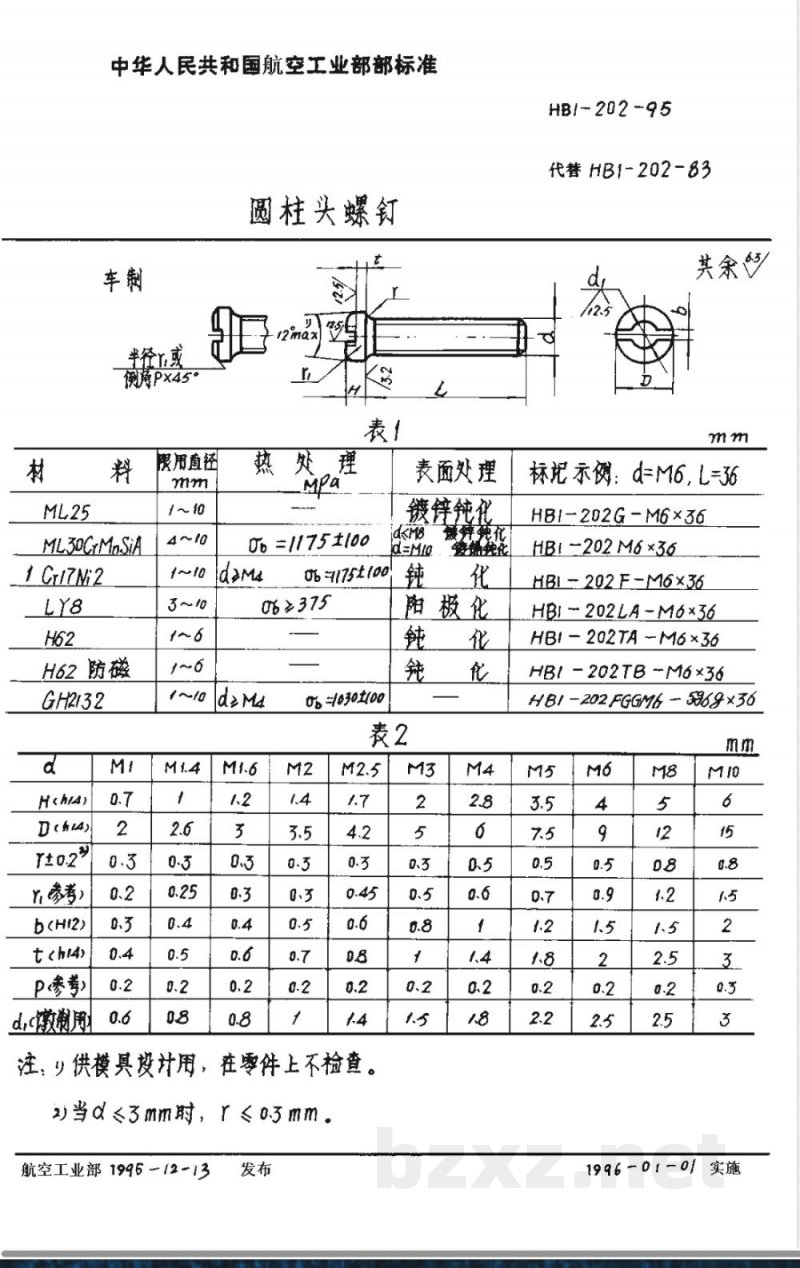 中华人民共和国航空工业部部标准
HB1-202-95
代替 HB1-202-83
圆柱头螺钉
车制
其余 6.3
t
12.5
r
d1
12.5
b
12°max 1)
12.5
d
半径r1或
倒角P×45°
r1
H
3.2
L
D
表1
mm
材料 限用直径 mm 热处理 MPa 表面处理 标记示例: d=M6, L=36
ML25 1~10 — 镀锌钝化 HB1-202G-M6×36
ML30CrMnSiA 4~10 σb=1175±100 d≤M8 镀锌钝化 HB1-202M6×36
d=M10
1Cr17Ni2 1~10 d≥M4 σb=1175±100 钝化 HB1-202F-M6×36
LY8 3~10 σb≥375 阳极化 HB1-202LA-M6×36
H62 1~6 — 钝化 HB1-202TA-M6×36
H62防磁 1~6 — 钝化 HB1-202TB-M6×36
GH2132 1~10 d≥M4 σb=1030±100 — HB1-202FGGM6-×36
表2
mm
d M1 M1.4 M1.6 M2 M2.5 M3 M4 M5 M6 M8 M10
H(h14) 0.7 1 1.2 1.4 1.7 2 2.8 3.5 4 5 6
D(h14) 2 2.6 3 3.5 4.2 5 6 7.5 9 12 15
r±0.2 2) 0.3 0.3 0.3 0.3 0.3 0.3 0.5 0.5 0.5 0.8 0.8
r1(参考) 0.2 0.25 0.3 0.3 0.45 0.5 0.6 0.7 0.9 1.2 1.5
b(H12) 0.3 0.4 0.4 0.5 0.6 0.8 1 1.2 1.5 1.5 2
t(h14) 0.4 0.5 0.6 0.7 0.8 1 1.4 1.8 2 2.5 3
P(参考) 0.2 0.2 0.2 0.2 0.2 0.2 0.2 0.2 0.2 0.2 0.3
d1(镦制用) 0.6 0.8 0.8 1 1.4 1.5 1.8 2.2 2.5 2.5 3
注: 1)供模具设计用，在零件上不检查。
2)当d≤3mm时，r≤0.3mm。
bzxz.net
航空工业部 1995-12-13 发布 1996-01-01 实施